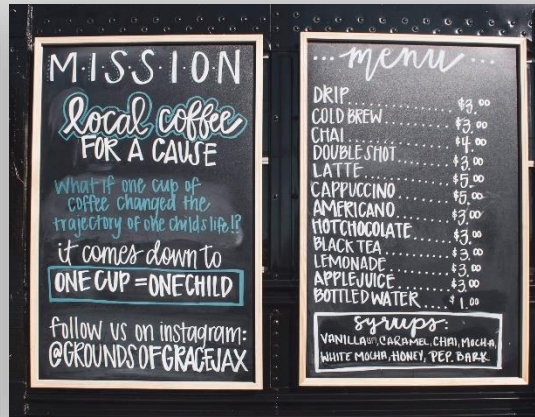 M·I·S·S·I·O·N
local coffee
FOR A CAUSE
What if one cup of
coffee changed the
trajectory of one child's life!?
it comes down to
ONE CUP = ONE CHILD
follow us on instagram:
@GROUNDSOFGRACEJAX
...menu...
DRIP............$3.00
COLD BREW............$3.00
CHAI............$4.00
DOUBLE SHOT............$3.00
LATTE............$5.00
CAPPUCCINO............$5.00
AMERICANO............$3.00
HOT CHOCOLATE............$3.00
BLACK TEA............$3.00
LEMONADE............$3.00
APPLE JUICE............$3.00
BOTTLED WATER....$1.00
syrups:
VANILLA, CARAMEL, CHAI, MOCHA,
WHITE MOCHA, HONEY, PEP. BARK